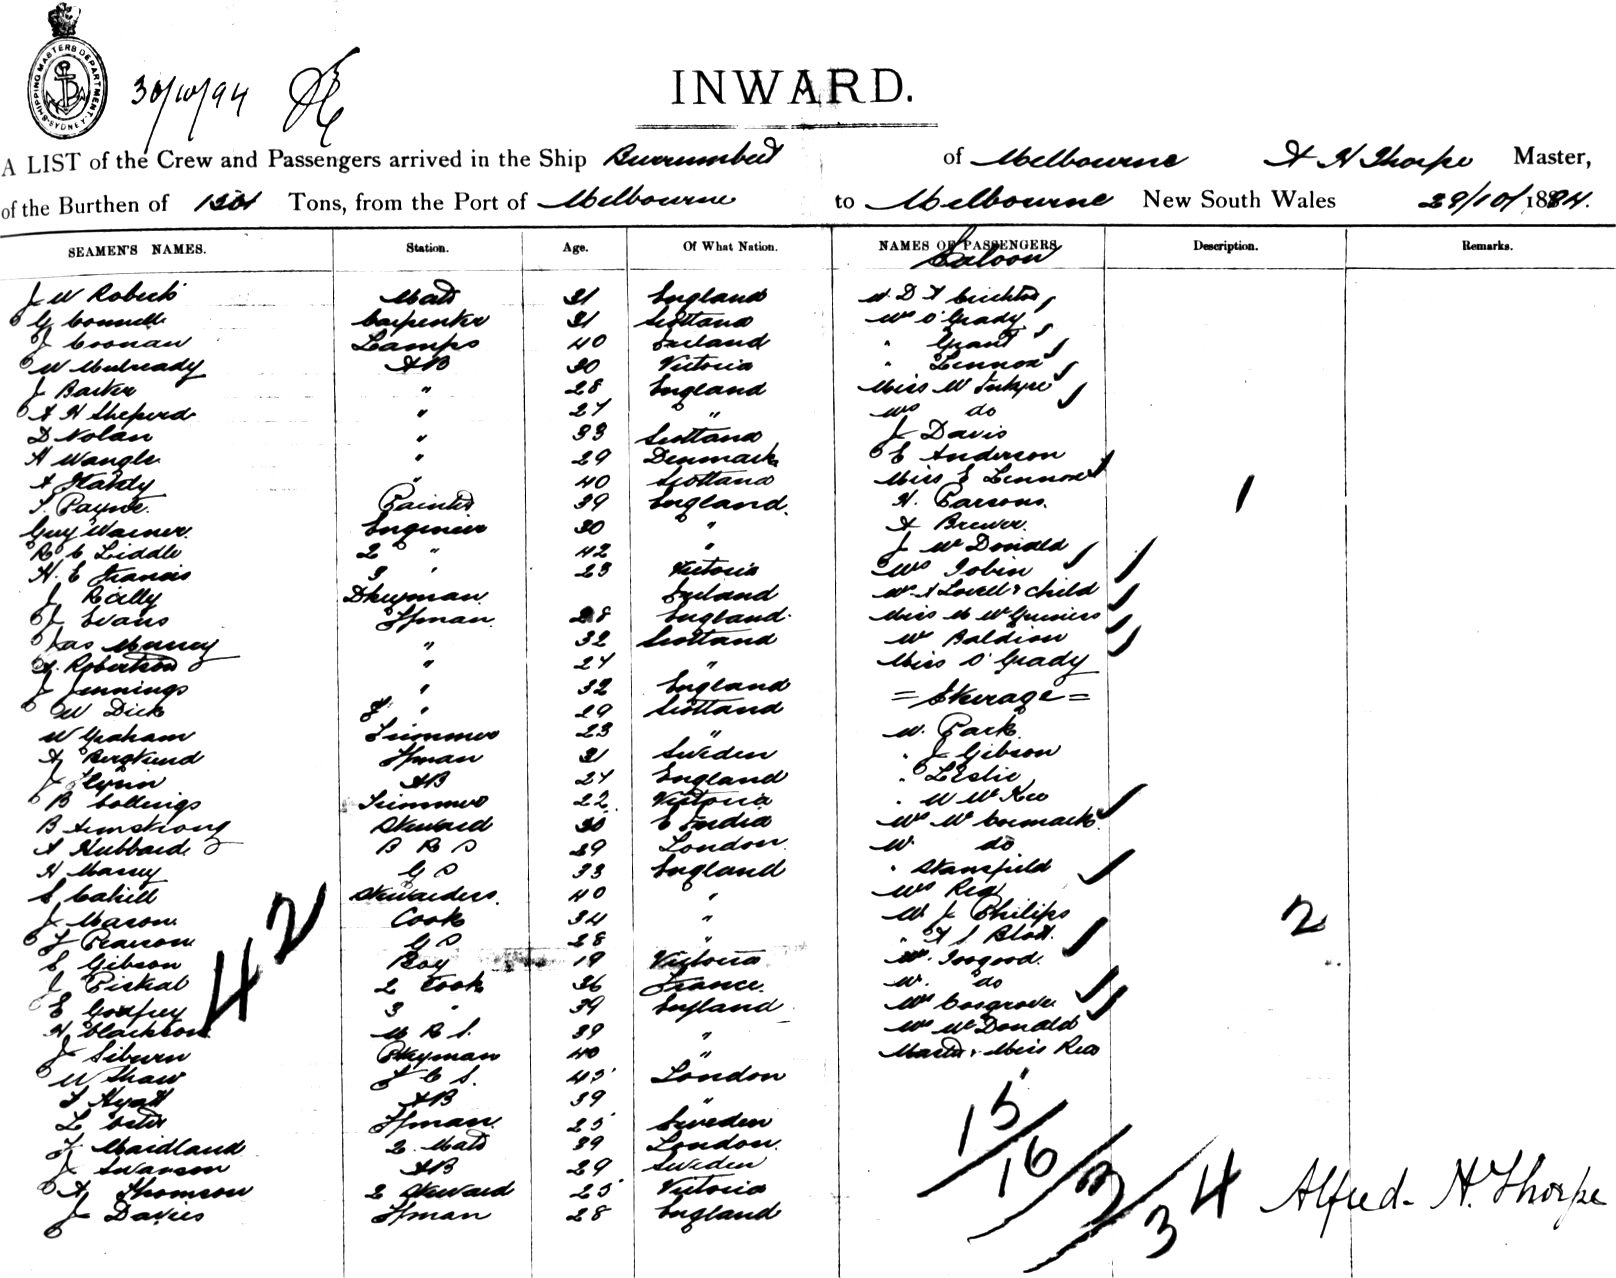 SHIPPING MASTERS DEPARTMENT. SYDNEY
30/10/94
INWARD.
A LIST of the Crew and Passengers arrived in the Ship Burrumbeet of Melbourne A H Thorpe Master,
of the Burthen of Tons, from the Port of Melbourne to Melbourne New South Wales 29/10/1894.
SEAMEN'S NAMES. Station. Age. Of What Nation. NAMES OF PASSENGERS Description. Remarks.
Saloon
J W Mate 31 England
G Connell Carpenter 31 Scotland Mrs O'Grady
J Coonan Lamps 40 Ireland " Grant
W Mulready AB 30 Victoria " Lennox
J Barker " 28 England Miss
A H Sheperd " 27 " Mrs do
D Nolan " 33 Scotland J Davis
H Wangle " 29 Denmark E Anderson
A Hardy " 40 Scotland Miss E Lennox
T. Payne. Painter 39 England. H. Parsons. 1
Guy Warner. Engineer 30 " A Brewer.
R C Liddle 2 " 42 " J McDonald
H. E Francis 3 " 23 Victoria Mrs Tobin
J Reilly Dkeyman Ireland Mr A Lovell & child
J Evans Ffman 28 England Miss M
Jas Murray " 32 Scotland Mr
A. Robertson " 24 " Miss O'Grady
J Jennings " 32 England = Steerage =
W Dick " 29 Scotland
W Graham Trimmer 23 " Mr. Park
A Berglund Ffman 31 Sweden " J Gibson
J Flynn AB 27 England " Leslie
B Collings Trimmer 22 Victoria " W McKee
B Armstrong Steward 30 E India Mrs McCormack
A Hubbard B R S 39 London. Mr do
H Massey G S 33 England " Stansfield
S Cahill Stewardess. 40 " Mrs Rea
J Mason Cook 34 " Mr J Philips 2
J Pearson G S 28 "
E Gibson Boy 19 Victoria Mr. Toogood.
J Piskal 2 Cook 36 France. Mr. do
E Godfrey 3 " 39 England Mrs Cosgrove
H Clarkson M R S. 39 " Mrs McDonald
J Siburn Pkeyman 40 " Master & Miss Rea
W Shaw F C S. 45 London
T Hyatt AB 39 "
Ffman. 25 Sweden
F Maidland 2 Mate 39 London.
J Swanson AB 29 Sweden
A Thomson 2 Steward 25 Victoria
J Davies Ffman 28 England
42
15/16/3/34
Alfred H. Thorpe